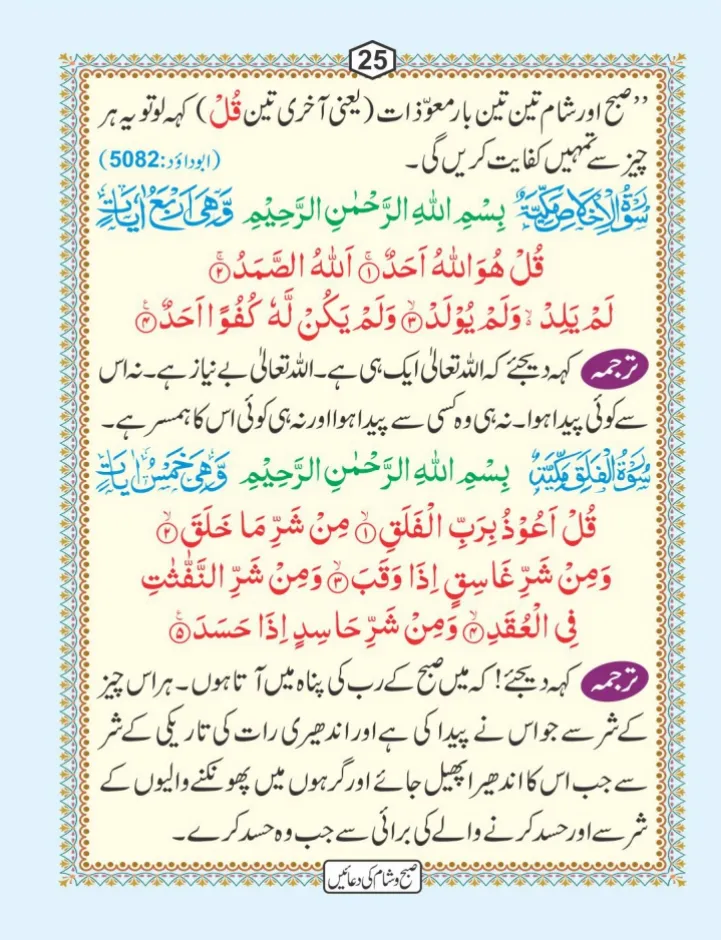 25
”صبح اور شام تین تین بار معوّذات (یعنی آخری تین قُلْ) کہہ لو تو یہ ہر
چیز سے تمہیں کفایت کریں گی۔ (ابوداؤد:5082)
سُوْرَةُ الْاِخْلَاصِ مَكِّيَّةٌ بِسْمِ اللهِ الرَّحْمٰنِ الرَّحِيْمِ وَّهِيَ اَرْبَعُ اٰيَاتٍ
قُلْ هُوَ اللهُ اَحَدٌ ۚ﴿۱﴾ اَللهُ الصَّمَدُ ۚ﴿۲﴾
لَمْ يَلِدْ ۙ وَلَمْ يُوْلَدْ ۙ﴿۳﴾ وَلَمْ يَكُنْ لَّهٗ كُفُوًا اَحَدٌ ۧ﴿۴﴾
ترجمہ کہہ دیجئے کہ اللہ تعالیٰ ایک ہی ہے۔ اللہ تعالیٰ بے نیاز ہے۔ نہ اس
سے کوئی پیدا ہوا۔ نہ ہی وہ کسی سے پیدا ہوا اور نہ ہی کوئی اس کا ہمسر ہے۔
سُوْرَةُ الْفَلَقِ مَكِّيَّةٌ بِسْمِ اللهِ الرَّحْمٰنِ الرَّحِيْمِ وَّهِيَ خَمْسُ اٰيَاتٍ
قُلْ اَعُوْذُ بِرَبِّ الْفَلَقِ ۙ﴿۱﴾ مِنْ شَرِّ مَا خَلَقَ ۙ﴿۲﴾
وَمِنْ شَرِّ غَاسِقٍ اِذَا وَقَبَ ۙ﴿۳﴾ وَمِنْ شَرِّ النَّفّٰثٰتِ
فِى الْعُقَدِ ۙ﴿۴﴾ وَمِنْ شَرِّ حَاسِدٍ اِذَا حَسَدَ ۧ﴿۵﴾
ترجمہ کہہ دیجئے! کہ میں صبح کے رب کی پناہ میں آتا ہوں۔ ہر اس چیز
کے شر سے جو اس نے پیدا کی ہے اور اندھیری رات کی تاریکی کے شر
سے جب اس کا اندھیرا پھیل جائے اور گرہوں میں پھونکنے والیوں کے
شر سے اور حسد کرنے والے کی برائی سے جب وہ حسد کرے۔
صبح و شام کی دعائیں